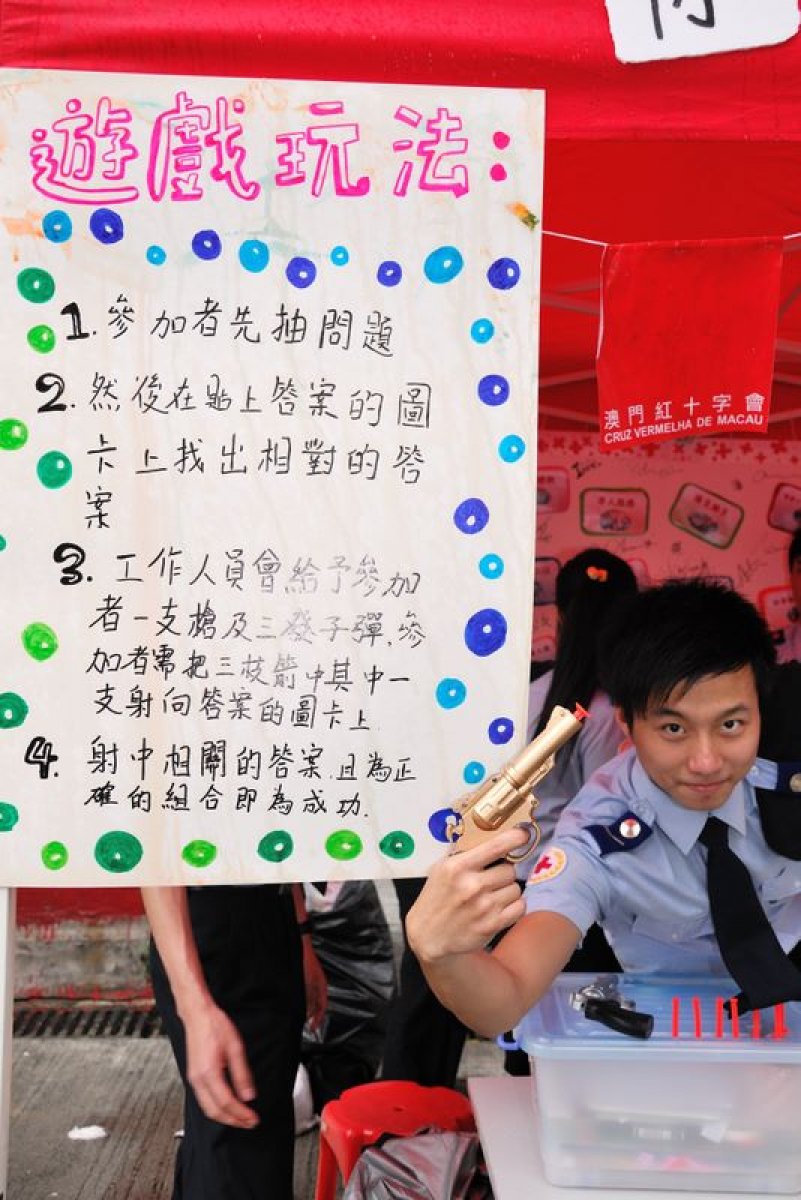 遊戲玩法：
1. 參加者先抽問題
2. 然後在貼上答案的圖
卡上找出相對的答
案
3. 工作人員會給予參加
者一支槍及三發子彈，參
加者需把三枝箭中其中一
支射向答案的圖卡上.
4. 射中相關的答案，且為正
確的組合即為成功.
澳門紅十字會
CRUZ VERMELHA DE MACAU